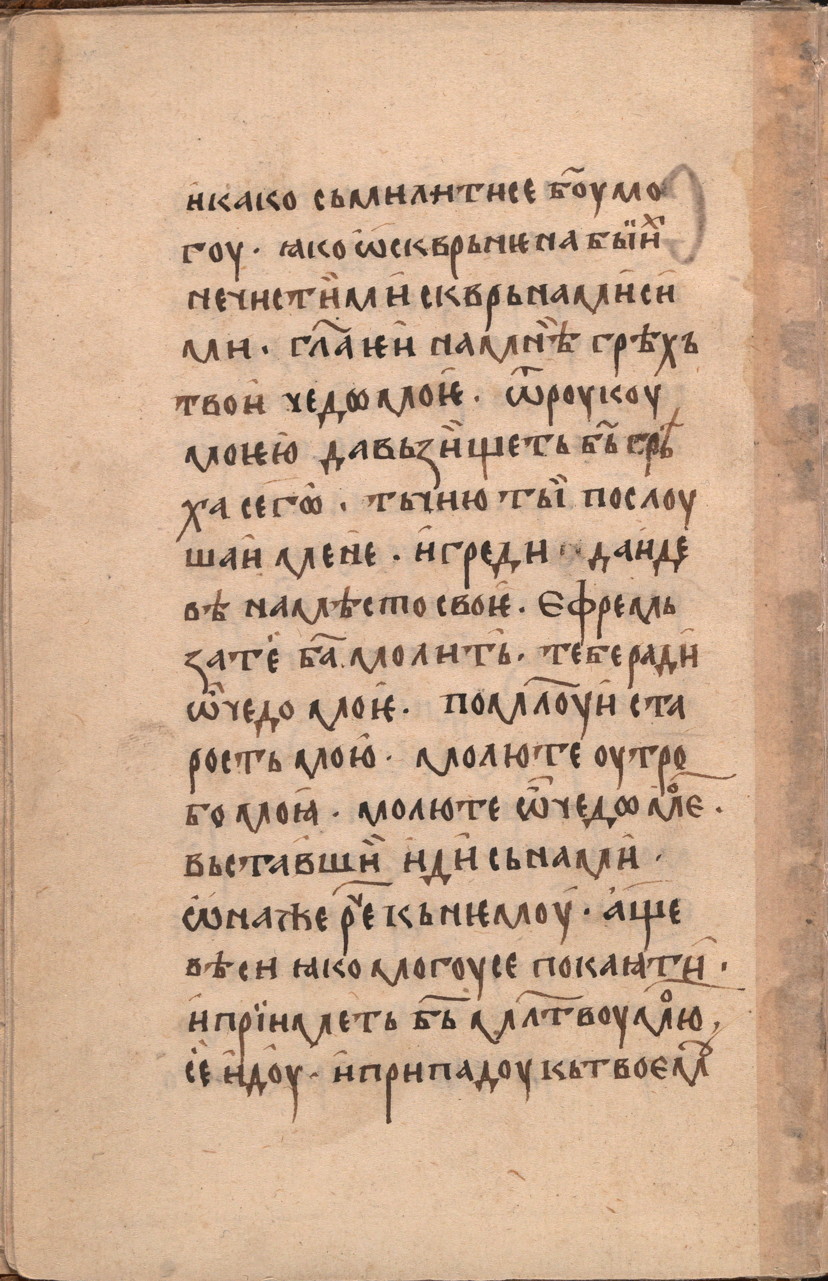 и како сьмилитисе бо҃у мо
гоу · ꙗко ѡ҆скврьнѥна бы́и҆х
нечисти́ми скврьнами си
ми · гл҃а ѥи на мнѣ̀ грѣхъ
твои чедѡ моѥ · ѿ роукоу
моѥю да вьзи́щеть бь҃ грѣ
ха сегѡ̀ · тьчию ты̀ послоу
шаи мене · и греди да иде
вѣ на мѣсто своѥ · Єфремь
за те̏ ба҃ молить · тебе ради
ѽ чедо моѥ · помл҃оуи ста
рость мою · молю те оутро
бо моꙗ · молю те ѽ чедѡ моѥ ·
вьставши̏ иди сь нами ·
ѡна же рече кь нѥмоу · а҆ще
вѣси ꙗко могоусе покаꙗти ·
и прїимѥть бь҃ мл҃твоу мою ,
се̏ идоу · и припадоу кь твоем